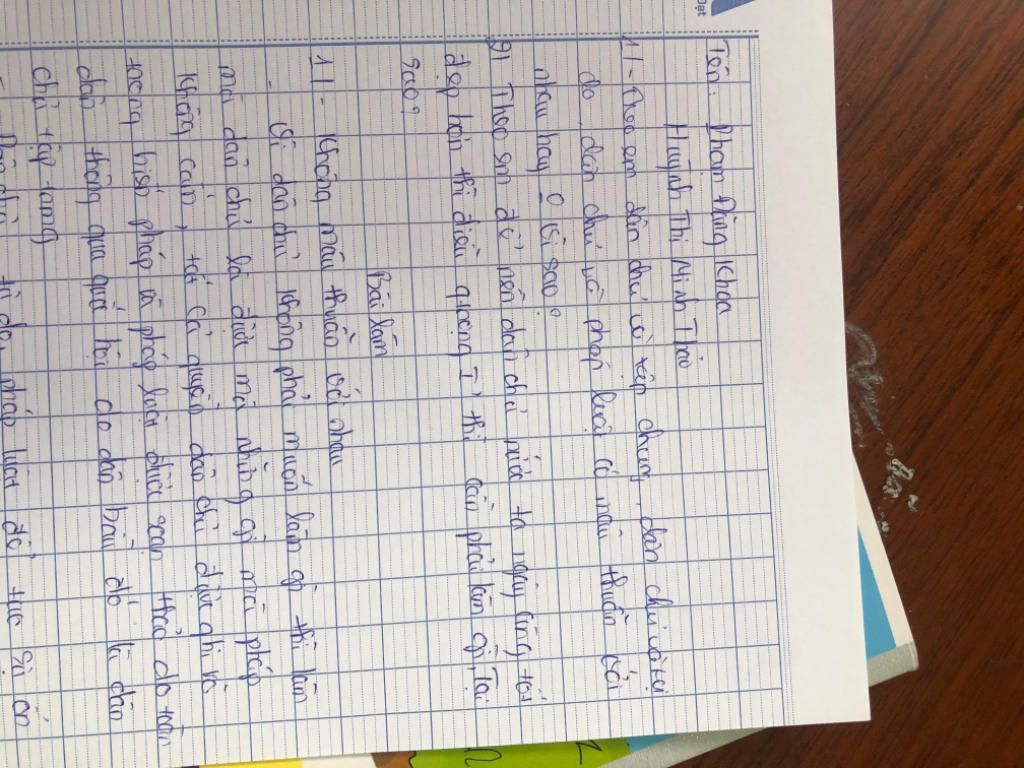 Đạt
Tên: Phạm Đăng Khoa
Huỳnh Thị Minh Thảo
1/- Theo em dân chủ và tập chung, dân chủ và tự
do, dân chủ và pháp luật có mâu thuẫn với
nhau hay 0 Vì sao?
2/ Theo em để nền dân chủ nước ta ngày càng tốt
đẹp hơn thì điều quan trọng 1 thì cần phải làm gì Tại
sao?
Bài làm
1/- Không mâu thuẫn với nhau
- Vì dân chủ không phải muốn làm gì thì làm
mà dân chủ là được mà những gì mà pháp
không cấm, tất cả quyền dân chủ được ghi rõ
trong hiến pháp và pháp luật được soạn thảo do toàn
dân thông qua quốc hội do dân bầu đó là dân
chủ tập tang
pháp luật